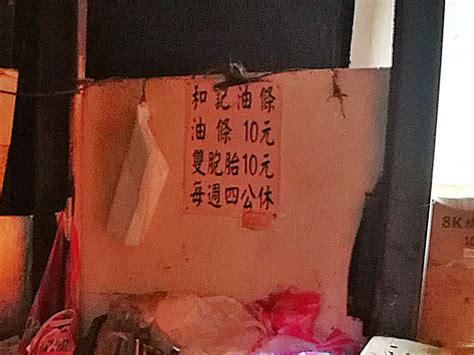 和記油條
油條10元
雙胞胎10元
每週四公休
8K